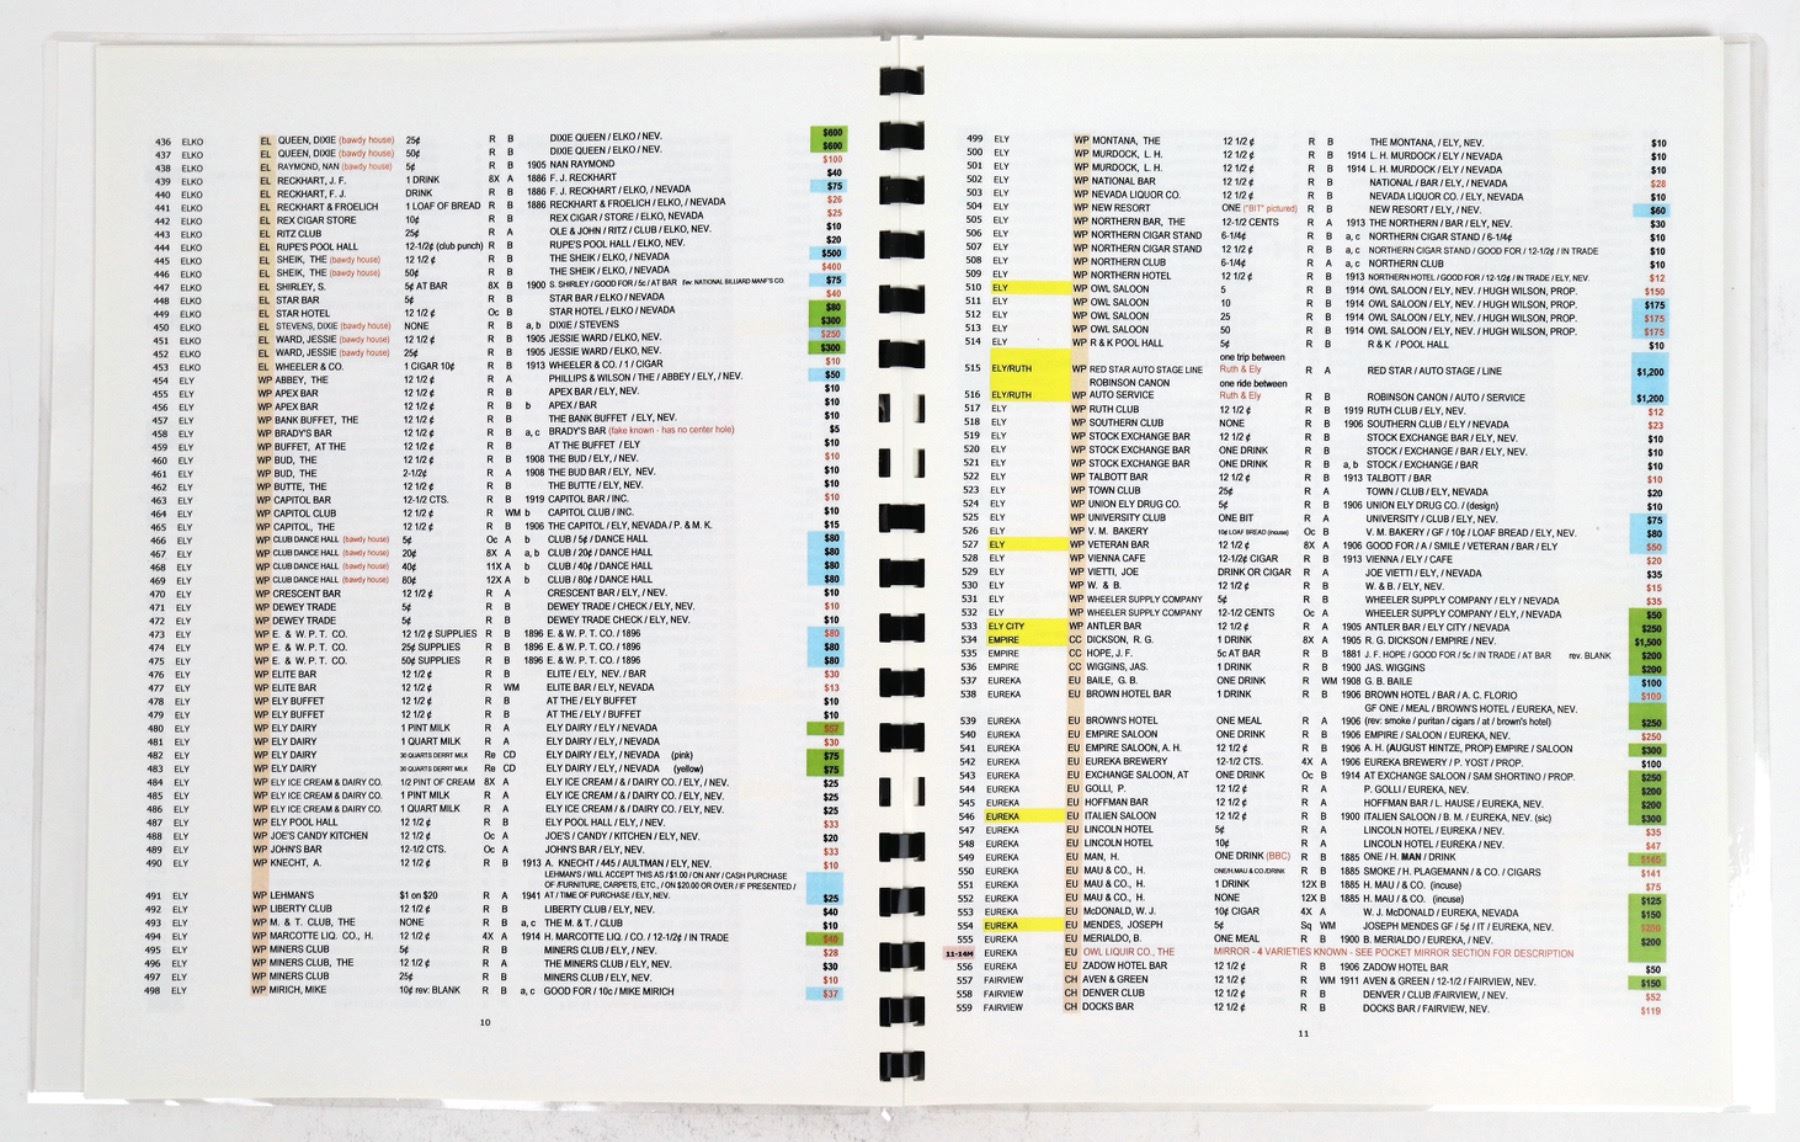 436 ELKO EL QUEEN, DIXIE (bawdy house) 25¢ R B DIXIE QUEEN / ELKO / NEV. $600
437 ELKO EL QUEEN, DIXIE (bawdy house) 50¢ R B DIXIE QUEEN / ELKO / NEV. $600
438 ELKO EL RAYMOND, NAN (bawdy house) 5¢ R B 1905 NAN RAYMOND $100
439 ELKO EL RECKHART, J. F. 1 DRINK 8X A 1886 F. J. RECKHART $40
440 ELKO EL RECKHART, F. J. DRINK R B 1886 F. J. RECKHART / ELKO, / NEVADA $75
441 ELKO EL RECKHART & FROELICH 1 LOAF OF BREAD R B 1886 RECKHART & FROELICH / ELKO, / NEVADA $26
442 ELKO EL REX CIGAR STORE 10¢ R B REX CIGAR / STORE / ELKO, NEVADA $25
443 ELKO EL RITZ CLUB 25¢ R A OLE & JOHN / RITZ / CLUB / ELKO, NEV. $10
444 ELKO EL RUPE'S POOL HALL 12-1/2¢ (club punch) R B RUPE'S POOL HALL / ELKO, NEV. $20
445 ELKO EL SHEIK, THE (bawdy house) 12 1/2 ¢ R B THE SHEIK / ELKO, NEVADA $500
446 ELKO EL SHEIK, THE (bawdy house) 50¢ R B THE SHEIK / ELKO, NEVADA $400
447 ELKO EL SHIRLEY, S. 5¢ AT BAR 8X B 1900 S. SHIRLEY / GOOD FOR / 5c / AT BAR Rev. NATIONAL BILLIARD MANF'S CO. $75
448 ELKO EL STAR BAR 5¢ R B STAR BAR / ELKO / NEVADA $40
449 ELKO EL STAR HOTEL 12 1/2 ¢ Oc B STAR HOTEL / ELKO / NEVADA $80
450 ELKO EL STEVENS, DIXIE (bawdy house) NONE R B a, b DIXIE / STEVENS $300
451 ELKO EL WARD, JESSIE (bawdy house) 12 1/2 ¢ R B 1905 JESSIE WARD / ELKO, NEV. $250
452 ELKO EL WARD, JESSIE (bawdy house) 25¢ R B 1905 JESSIE WARD / ELKO, NEV. $300
453 ELKO EL WHEELER & CO. 1 CIGAR 10¢ R B 1913 WHEELER & CO. / 1 / CIGAR $10
454 ELY WP ABBEY, THE 12 1/2 ¢ R A PHILLIPS & WILSON / THE / ABBEY / ELY, / NEV. $50
455 ELY WP APEX BAR 12 1/2 ¢ R B APEX BAR / ELY, NEV. $10
456 ELY WP APEX BAR 12 1/2 ¢ R B b APEX / BAR $10
457 ELY WP BANK BUFFET, THE 12 1/2 ¢ R B THE BANK BUFFET / ELY, NEV. $10
458 ELY WP BRADY'S BAR 12 1/2 ¢ R B a, c BRADY'S BAR (fake known - has no center hole) $5
459 ELY WP BUFFET, AT THE 12 1/2 ¢ R B AT THE BUFFET / ELY $10
460 ELY WP BUD, THE 12 1/2 ¢ R B 1908 THE BUD / ELY, / NEV. $10
461 ELY WP BUD, THE 2-1/2¢ R A 1908 THE BUD BAR / ELY, NEV. $10
462 ELY WP BUTTE, THE 12 1/2 ¢ R B THE BUTTE / ELY, NEV. $10
463 ELY WP CAPITOL BAR 12-1/2 CTS. R B 1919 CAPITOL BAR / INC. $10
464 ELY WP CAPITOL CLUB 12 1/2 ¢ R WM b CAPITOL CLUB / INC. $10
465 ELY WP CAPITOL, THE 12 1/2 ¢ R B 1906 THE CAPITOL / ELY, NEVADA / P. & M. K. $15
466 ELY WP CLUB DANCE HALL (bawdy house) 5¢ Oc A b CLUB / 5¢ / DANCE HALL $80
467 ELY WP CLUB DANCE HALL (bawdy house) 20¢ 8X A a, b CLUB / 20¢ / DANCE HALL $80
468 ELY WP CLUB DANCE HALL (bawdy house) 40¢ 11X A b CLUB / 40¢ / DANCE HALL $80
469 ELY WP CLUB DANCE HALL (bawdy house) 80¢ 12X A b CLUB / 80¢ / DANCE HALL $80
470 ELY WP CRESCENT BAR 12 1/2 ¢ R A CRESCENT BAR / ELY, / NEV. $10
471 ELY WP DEWEY TRADE 5¢ R B DEWEY TRADE / CHECK / ELY, NEV. $10
472 ELY WP DEWEY TRADE 5¢ R B DEWEY TRADE CHECK / ELY, NEV. $10
473 ELY WP E. & W. P. T. CO. 12 1/2 ¢ SUPPLIES R B 1896 E. & W. P. T. CO. / 1896 $80
474 ELY WP E. & W. P. T. CO. 25¢ SUPPLIES R B 1896 E. & W. P. T. CO. / 1896 $80
475 ELY WP E. & W. P. T. CO. 50¢ SUPPLIES R B 1896 E. & W. P. T. CO. / 1896 $80
476 ELY WP ELITE BAR 12 1/2 ¢ R B ELITE / ELY, NEV. / BAR $30
477 ELY WP ELITE BAR 12 1/2 ¢ R WM ELITE BAR / ELY, NEVADA $13
478 ELY WP ELY BUFFET 12 1/2 ¢ R B AT THE / ELY BUFFET $10
479 ELY WP ELY BUFFET 12 1/2 ¢ R B AT THE / ELY / BUFFET $10
480 ELY WP ELY DAIRY 1 PINT MILK R A ELY DAIRY / ELY / NEVADA $57
481 ELY WP ELY DAIRY 1 QUART MILK R A ELY DAIRY / ELY, / NEVADA $30
482 ELY WP ELY DAIRY 30 QUARTS DERRT MILK Re CD ELY DAIRY / ELY, / NEVADA (pink) $75
483 ELY WP ELY DAIRY 30 QUARTS DERRT MILK Re CD ELY DAIRY / ELY, / NEVADA (yellow) $75
484 ELY WP ELY ICE CREAM & DAIRY CO. 1/2 PINT OF CREAM 8X A ELY ICE CREAM / & / DAIRY CO. / ELY, / NEV. $25
485 ELY WP ELY ICE CREAM & DAIRY CO. 1 PINT MILK R A ELY ICE CREAM / & / DAIRY CO. / ELY, NEV. $25
486 ELY WP ELY ICE CREAM & DAIRY CO. 1 QUART MILK R A ELY ICE CREAM / & / DAIRY CO. / ELY, NEV. $25
487 ELY WP ELY POOL HALL 12 1/2 ¢ R B ELY POOL HALL / ELY, / NEV. $33
488 ELY WP JOE'S CANDY KITCHEN 12 1/2 ¢ Oc A JOE'S / CANDY / KITCHEN / ELY, NEV. $20
489 ELY WP JOHN'S BAR 12-1/2 CTS. Oc A JOHN'S BAR / ELY, NEV. $33
490 ELY WP KNECHT, A. 12 1/2 ¢ R B 1913 A. KNECHT / 445 / AULTMAN / ELY, NEV. $10
LEHMAN'S / WILL ACCEPT THIS AS / $1.00 / ON ANY / CASH PURCHASE
OF /FURNITURE, CARPETS, ETC., / ON $20.00 OR OVER / IF PRESENTED /
491 ELY WP LEHMAN'S $1 on $20 R A 1941 AT / TIME OF PURCHASE / ELY, NEV. $25
492 ELY WP LIBERTY CLUB 12 1/2 ¢ R B LIBERTY CLUB / ELY, NEV. $40
493 ELY WP M. & T. CLUB, THE NONE R B a, c THE M. & T. / CLUB $10
494 ELY WP MARCOTTE LIQ. CO., H. 12 1/2 ¢ 4X A 1914 H. MARCOTTE LIQ. / CO. / 12-1/2¢ / IN TRADE $40
495 ELY WP MINERS CLUB 5¢ R B MINERS CLUB / ELY, / NEV. $28
496 ELY WP MINERS CLUB, THE 12 1/2 ¢ R A THE MINERS CLUB / ELY, NEV. $30
497 ELY WP MINERS CLUB 25¢ R B MINERS CLUB / ELY, NEV. $10
498 ELY WP MIRICH, MIKE 10¢ rev: BLANK R B a, c GOOD FOR / 10c / MIKE MIRICH $37
10
499 ELY WP MONTANA, THE 12 1/2 ¢ R B THE MONTANA, / ELY, NEV. $10
500 ELY WP MURDOCK, L. H. 12 1/2 ¢ R B 1914 L. H. MURDOCK / ELY / NEVADA $10
501 ELY WP MURDOCK, L. H. 12 1/2 ¢ R B 1914 L. H. MURDOCK / ELY / NEVADA $10
502 ELY WP NATIONAL BAR 12 1/2 ¢ R B NATIONAL / BAR / ELY, / NEVADA $28
503 ELY WP NEVADA LIQUOR CO. 12 1/2 ¢ R B NEVADA LIQUOR CO. / ELY, / NEVADA $10
504 ELY WP NEW RESORT ONE ("BIT" pictured) R B NEW RESORT / ELY, / NEV. $60
505 ELY WP NORTHERN BAR, THE 12-1/2 CENTS R A 1913 THE NORTHERN / BAR / ELY, NEV. $30
506 ELY WP NORTHERN CIGAR STAND 6-1/4¢ R B a, c NORTHERN CIGAR STAND / 6-1/4¢ $10
507 ELY WP NORTHERN CIGAR STAND 12 1/2 ¢ R B a, c NORTHERN CIGAR STAND / GOOD FOR / 12-1/2¢ / IN TRADE $10
508 ELY WP NORTHERN CLUB 6-1/4¢ R A a, c NORTHERN CLUB $10
509 ELY WP NORTHERN HOTEL 12 1/2 ¢ R B 1913 NORTHERN HOTEL / GOOD FOR / 12-1/2¢ / IN TRADE / ELY, NEV. $12
510 ELY WP OWL SALOON 5 R B 1914 OWL SALOON / ELY, NEV. / HUGH WILSON, PROP. $150
511 ELY WP OWL SALOON 10 R B 1914 OWL SALOON / ELY, NEV. / HUGH WILSON, PROP. $175
512 ELY WP OWL SALOON 25 R B 1914 OWL SALOON / ELY, NEV. / HUGH WILSON, PROP. $175
513 ELY WP OWL SALOON 50 R B 1914 OWL SALOON / ELY, NEV. / HUGH WILSON, PROP. $175
514 ELY WP R & K POOL HALL 5¢ R B R & K / POOL HALL $10
one trip between
515 ELY/RUTH WP RED STAR AUTO STAGE LINE Ruth & Ely R A RED STAR / AUTO STAGE / LINE $1,200
ROBINSON CANON one ride between
516 ELY/RUTH WP AUTO SERVICE Ruth & Ely R B ROBINSON CANON / AUTO / SERVICE $1,200
517 ELY WP RUTH CLUB 12 1/2 ¢ R B 1919 RUTH CLUB / ELY, NEV. $12
518 ELY WP SOUTHERN CLUB NONE R B 1906 SOUTHERN CLUB / ELY / NEVADA $23
519 ELY WP STOCK EXCHANGE BAR 12 1/2 ¢ R B STOCK EXCHANGE BAR / ELY, NEV. $10
520 ELY WP STOCK EXCHANGE BAR ONE DRINK R B STOCK EXCHANGE / BAR / ELY, NEV. $10
521 ELY WP STOCK EXCHANGE BAR ONE DRINK R B a, b STOCK / EXCHANGE / BAR $10
522 ELY WP TALBOTT BAR 12 1/2 ¢ R B 1913 TALBOTT / BAR $10
523 ELY WP TOWN CLUB 25¢ R A TOWN / CLUB / ELY, NEVADA $20
524 ELY WP UNION ELY DRUG CO. 5¢ R B 1906 UNION ELY DRUG CO. / (design) $10
525 ELY WP UNIVERSITY CLUB ONE BIT R A UNIVERSITY / CLUB / ELY, NEV. $75
526 ELY WP V. M. BAKERY 10¢ LOAF BREAD (incuse) Oc B V. M. BAKERY / GF / 10¢ / LOAF BREAD / ELY, NEV. $80
527 ELY WP VETERAN BAR 12 1/2 ¢ 8X A 1906 GOOD FOR / A / SMILE / VETERAN / BAR / ELY $50
528 ELY WP VIENNA CAFE 12-1/2¢ CIGAR R B 1913 VIENNA / ELY / CAFE $20
529 ELY WP VIETTI, JOE DRINK OR CIGAR R A JOE VIETTI / ELY, / NEVADA $35
530 ELY WP W. & B. 12 1/2 ¢ R B W. & B. / ELY, NEV. $15
531 ELY WP WHEELER SUPPLY COMPANY 5¢ R B WHEELER SUPPLY COMPANY / ELY / NEVADA $35
532 ELY WP WHEELER SUPPLY COMPANY 12-1/2 CENTS Oc A WHEELER SUPPLY COMPANY / ELY, / NEVADA $50
533 ELY CITY WP ANTLER BAR 12 1/2 ¢ R A 1905 ANTLER BAR / ELY CITY / NEVADA $250
534 EMPIRE CC DICKSON, R. G. 1 DRINK 8X A 1905 R. G. DICKSON / EMPIRE / NEV. $1,500
535 EMPIRE CC HOPE, J. F. 5c AT BAR R B 1881 J. F. HOPE / GOOD FOR / 5c / IN TRADE / AT BAR rev. BLANK $200
536 EMPIRE CC WIGGINS, JAS. 1 DRINK R B 1900 JAS. WIGGINS $200
537 EUREKA EU BAILE, G. B. ONE DRINK R WM 1908 G. B. BAILE $100
538 EUREKA EU BROWN HOTEL BAR 1 DRINK R B 1906 BROWN HOTEL / BAR / A. C. FLORIO $100
GF ONE / MEAL / BROWN'S HOTEL / EUREKA, NEV.
539 EUREKA EU BROWN'S HOTEL ONE MEAL R A 1906 (rev: smoke / puritan / cigars / at / brown's hotel) $250
540 EUREKA EU EMPIRE SALOON ONE DRINK R B 1906 EMPIRE / SALOON / EUREKA, NEV. $250
541 EUREKA EU EMPIRE SALOON, A. H. 12 1/2 ¢ R B 1906 A. H. (AUGUST HINTZE, PROP) EMPIRE / SALOON $300
542 EUREKA EU EUREKA BREWERY 12-1/2 CTS. 4X A 1906 EUREKA BREWERY / P. YOST / PROP. $100
543 EUREKA EU EXCHANGE SALOON, AT ONE DRINK Oc B 1914 AT EXCHANGE SALOON / SAM SHORTINO / PROP. $250
544 EUREKA EU GOLLI, P. 12 1/2 ¢ R A P. GOLLI / EUREKA, NEV. $200
545 EUREKA EU HOFFMAN BAR 12 1/2 ¢ R A HOFFMAN BAR / L. HAUSE / EUREKA, NEV. $200
546 EUREKA EU ITALIEN SALOON 12 1/2 ¢ R B 1900 ITALIEN SALOON / B. M. / EUREKA, NEV. (sic) $300
547 EUREKA EU LINCOLN HOTEL 5¢ R A LINCOLN HOTEL / EUREKA / NEV. $35
548 EUREKA EU LINCOLN HOTEL 10¢ R A LINCOLN HOTEL / EUREKA / NEV. $47
549 EUREKA EU MAN, H. ONE DRINK (BBC) R B 1885 ONE / H. MAN / DRINK $165
550 EUREKA EU MAU & CO., H. ONE/H.MAU & CO./DRINK R B 1885 SMOKE / H. PLAGEMANN / & CO. / CIGARS $141
551 EUREKA EU MAU & CO., H. 1 DRINK 12X B 1885 H. MAU / & CO. (incuse) $75
552 EUREKA EU MAU & CO., H. NONE 12X B 1885 H. MAU / & CO. (incuse) $125
553 EUREKA EU McDONALD, W. J. 10¢ CIGAR 4X A W. J. McDONALD / EUREKA, NEVADA $150
554 EUREKA EU MENDES, JOSEPH 5¢ Sq WM JOSEPH MENDES GF / 5¢ / IT / EUREKA, NEV. $250
555 EUREKA EU MERIALDO, B. ONE MEAL R B 1900 B. MERIALDO / EUREKA, / NEV. $200
11-14M EUREKA EU OWL LIQUIR CO., THE MIRROR - 4 VARIETIES KNOWN - SEE POCKET MIRROR SECTION FOR DESCRIPTION
556 EUREKA EU ZADOW HOTEL BAR 12 1/2 ¢ R B 1906 ZADOW HOTEL BAR $50
557 FAIRVIEW CH AVEN & GREEN 12 1/2 ¢ R WM 1911 AVEN & GREEN / 12-1/2 / FAIRVIEW, NEV. $150
558 FAIRVIEW CH DENVER CLUB 12 1/2 ¢ R B DENVER / CLUB /FAIRVIEW, / NEV. $52
559 FAIRVIEW CH DOCKS BAR 12 1/2 ¢ R B DOCKS BAR / FAIRVIEW, NEV. $119
11